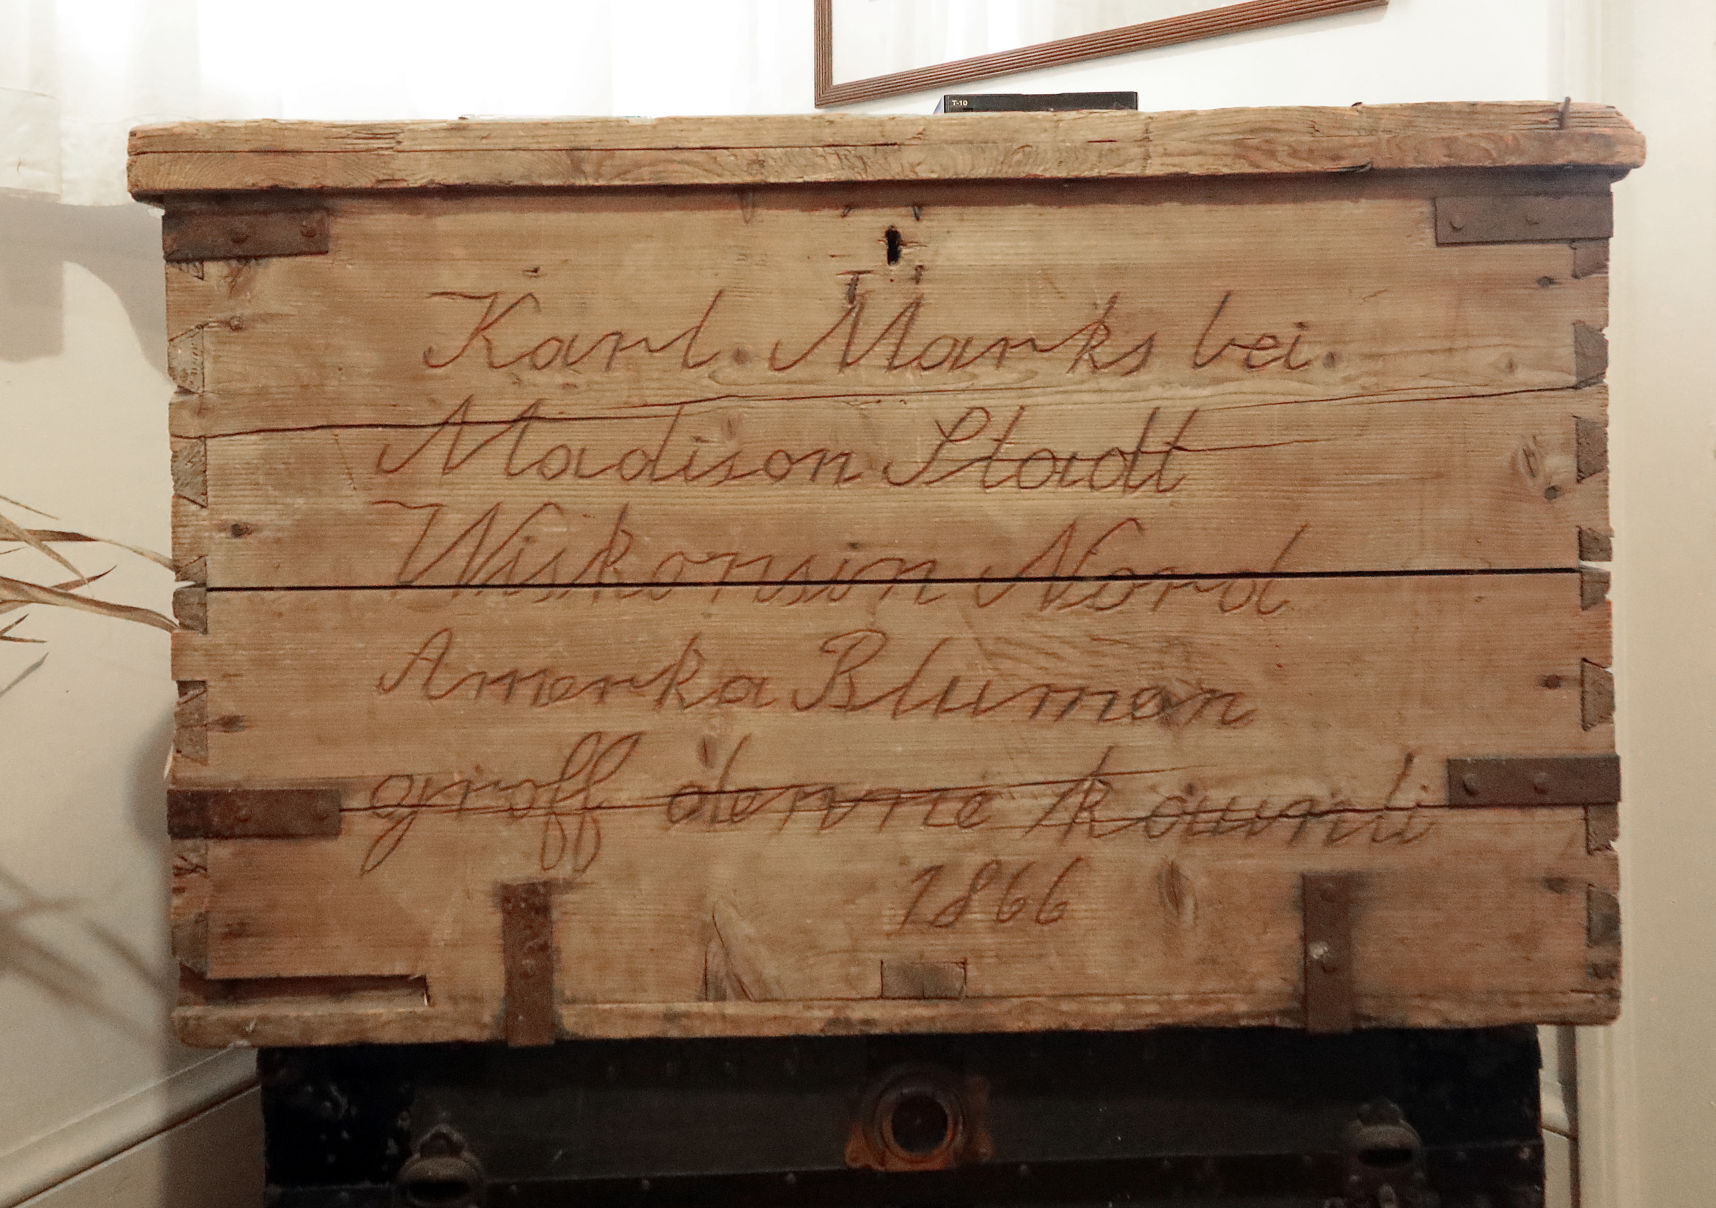 T-10
Karl. Marks bei.
Madison Stadt
Wiskonsin Nord
Amerka Bluman
groff denne kaunti
1866